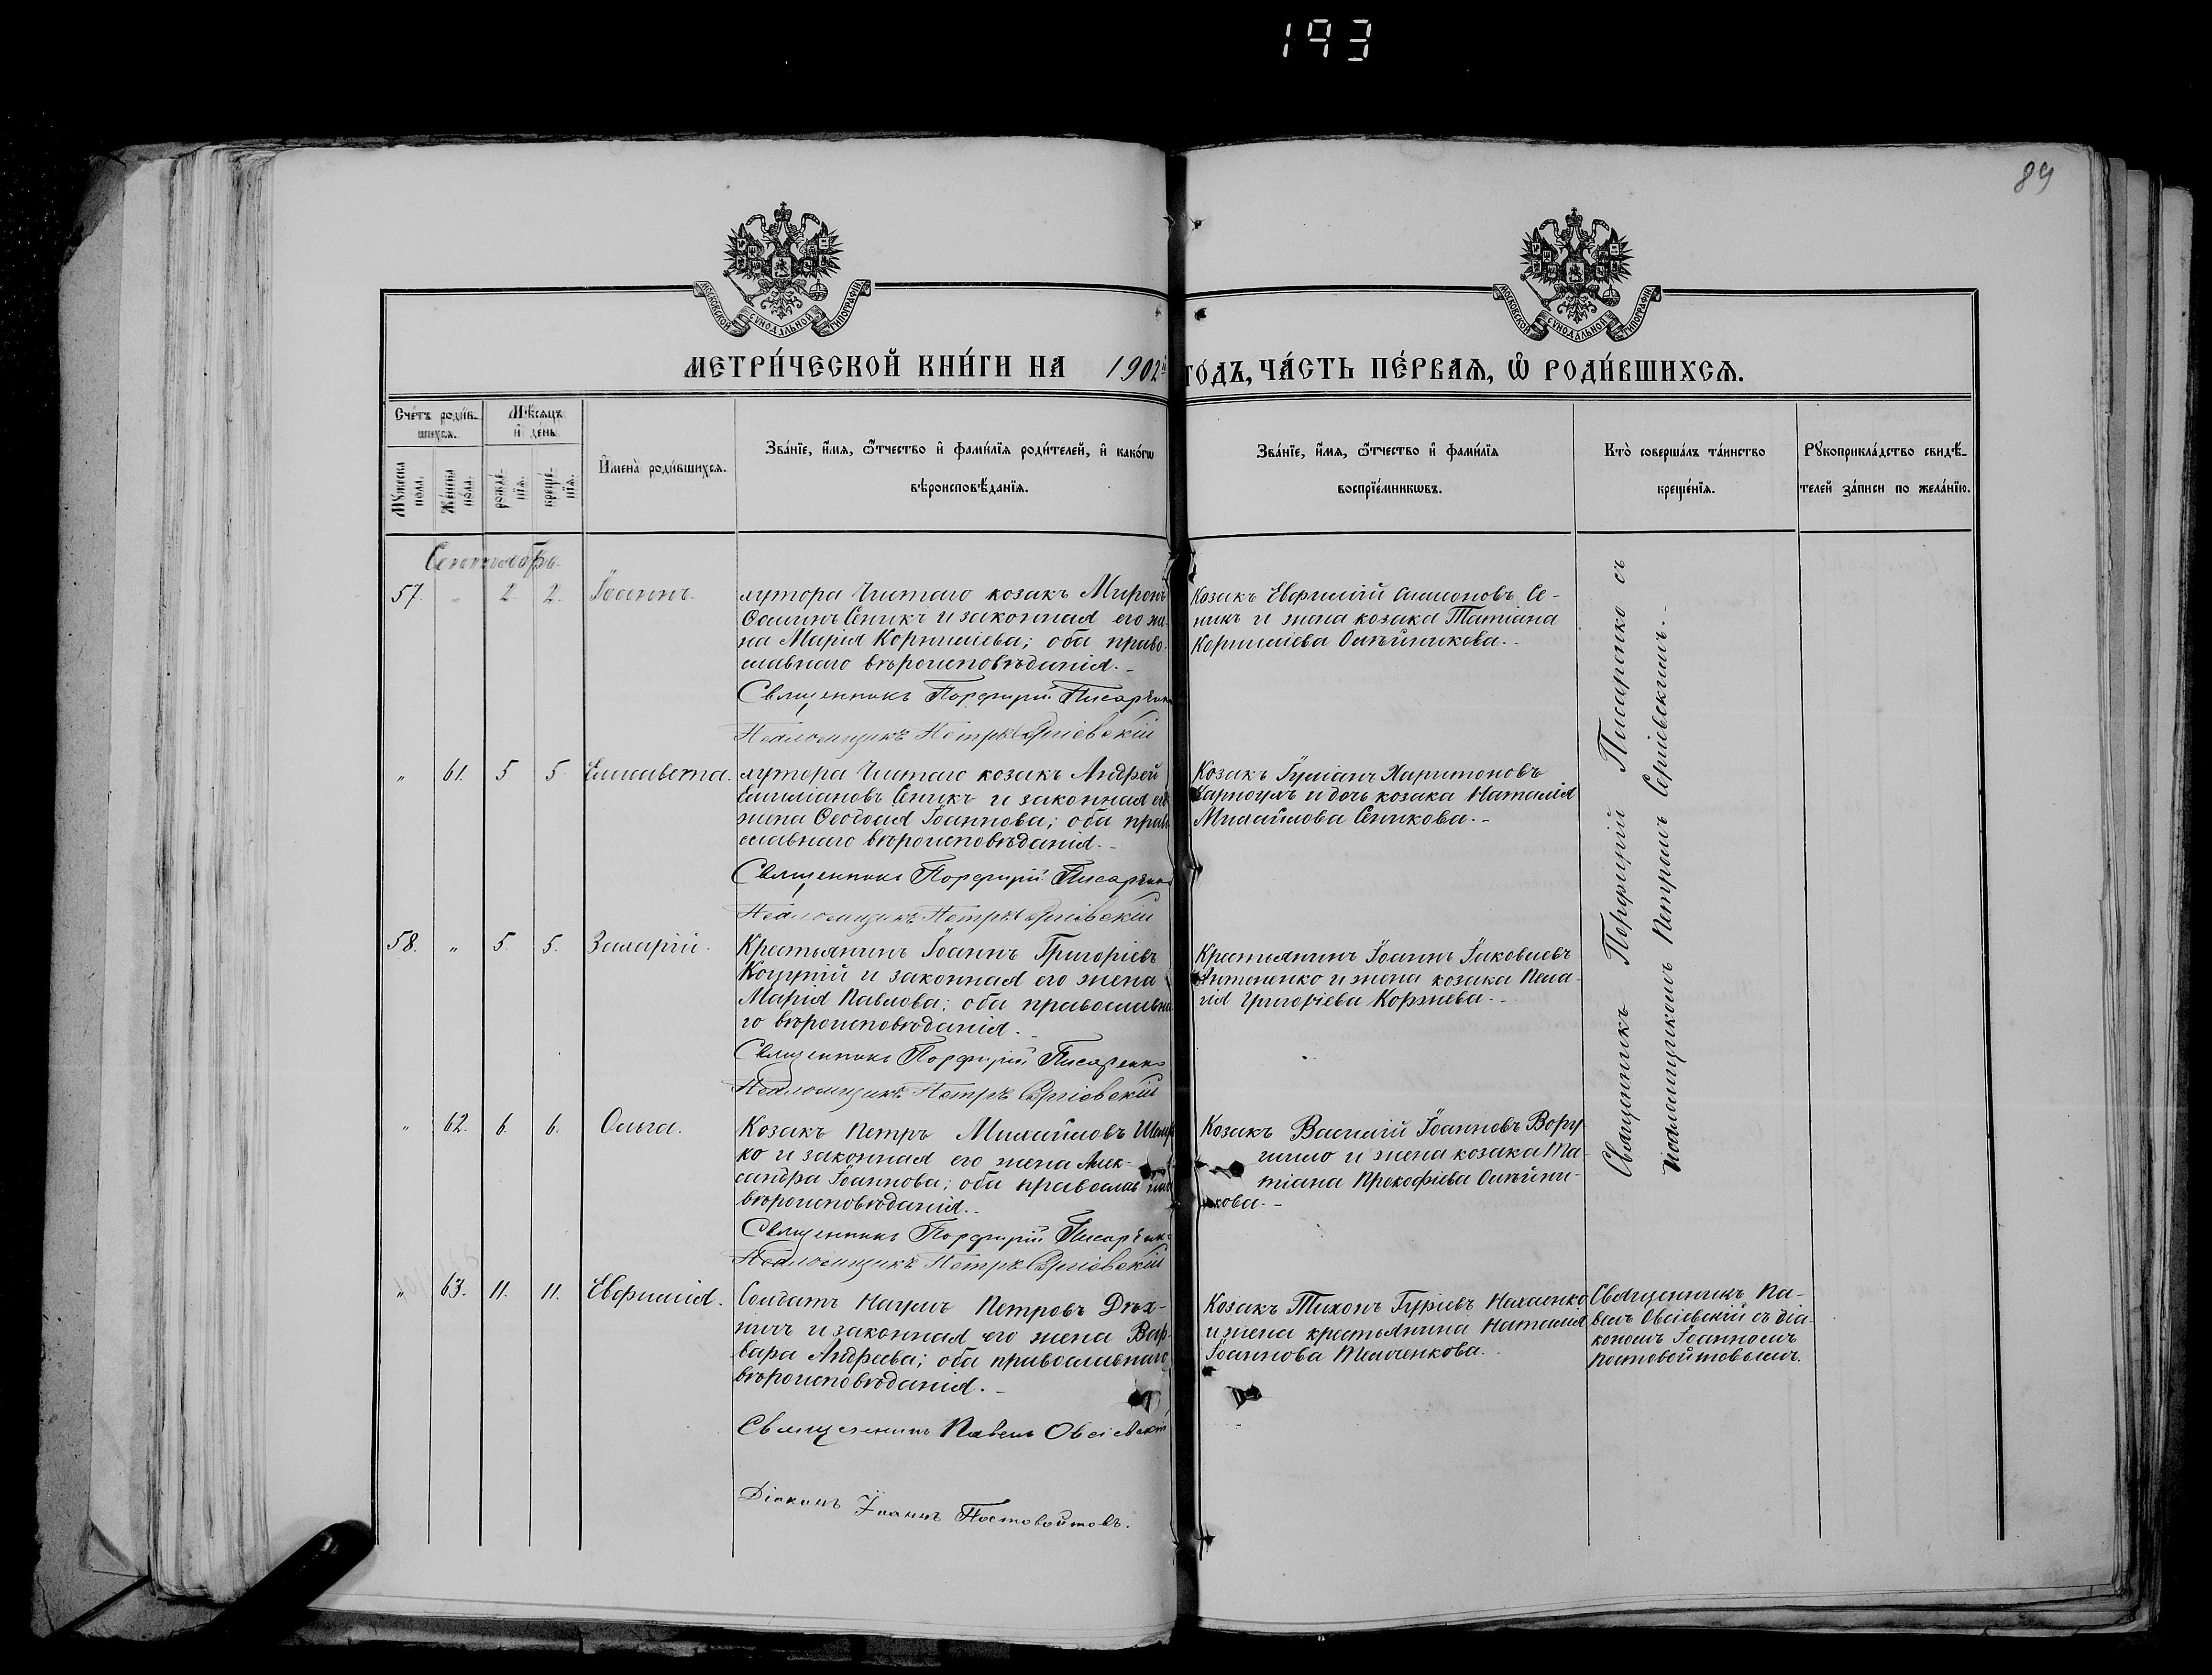 193
89
МОСКОВСКОЙ СѴНОДАЛЬНОЙ ТИПОГРАФІИ
МОСКОВСКОЙ СѴНОДАЛЬНОЙ ТИПОГРАФІИ
МЕТРИ́ЧЕСКОЙ КНИ́ГИ НА 1902й ГО́ДЪ, ЧА́СТЬ ПЕ́РВАЯ, Ѡ РОДИ́ВШИХСЯ.
Сче́тъ роди́в-
шихся.
Мѣ́сяцъ
и де́нь
Мꙋ́жеска
пола.
Же́нска
пола.
рожде́-
нїя.
креще́-
нїя.
Имена̀ роди́вшихся.
Зва́нїе, и́мя, ѻ́тчество и фами́лїя роди́телей, и како́гѡ
вѣроисповѣ́данїя.
Зва́нїе, и́мя, ѻ́тчество и фами́лїя
воспрїе́мникѡвъ.
Кто̀ соверша́лъ та́инство
креще́нїя.
Рꙋкоприкла́дство свидѣ́-
телей за́писи по жела́нїю.
Сентябрь
57. „ 2. 2. Іоаннъ.
хутора Чистаго козакъ Миронъ
Сеникъ и законная его же-
на Марія Корниліева; оба право-
славнаго вѣроисповѣданія.
Священникъ Порфирій Писаренко
Псаломщикъ Петръ Сергіевскій
Козакъ Евфимій Симоновъ Се-
никъ и жена козака Татіана
Корниліева Олѣйникова.
„ 61. 5. 5. Елисавета.
хутора Чистаго козакъ Андрей
Емиліановъ Сеникъ и законная его
жена Феодосія Іоаннова; оба право-
славнаго вѣроисповѣданія.
Священникъ Порфирій Писаренко
Псаломщикъ Петръ Сергіевскій
Козакъ Харитоновъ
и дочь козака Наталія
Михайлова Сеникова.
58. „ 5. 5. Захарій.
Крестьянинъ Іоаннъ Григоріевъ
Коцупій и законная его жена
Марія Павлова; оба православна-
го вѣроисповѣданія.
Священникъ Порфирій Писаренко
Псаломщикъ Петръ Сергіевскій
Крестьянинъ Іоаннъ Іаковлевъ
Антоненко и жена козака Пела-
гія Григоріева Коржева.
„ 62. 6. 6. Ольга.
Козакъ Петръ Михайловъ
ко и законная его жена Алек-
сандра Іоаннова; оба православнаго
вѣроисповѣданія.
Священникъ Порфирій Писаренко
Псаломщикъ Петръ Сергіевскій
Козакъ Василій Іоанновъ
и жена козака Та-
тіана Прокофіева Олѣйни-
кова.
Священникъ Порфирій Писаренко съ
Псаломщикомъ Петромъ Сергіевскимъ.
„ 63. 11. 11. Евфимія.
Солдатъ Наумъ Петровъ Дѣх-
но и законная его жена Вар-
вара Андреева; оба православнаго
вѣроисповѣданія.
Священникъ Павелъ Овсіевскій
Діаконъ Іоаннъ Постовойтовъ.
Козакъ Тихонъ Гуріевъ Нехаенко
и жена крестьянина Наталія
Іоаннова Темченкова.
Священникъ Па-
велъ Овсіевскій съ діа-
кономъ Іоанномъ
Постовойтовымъ.